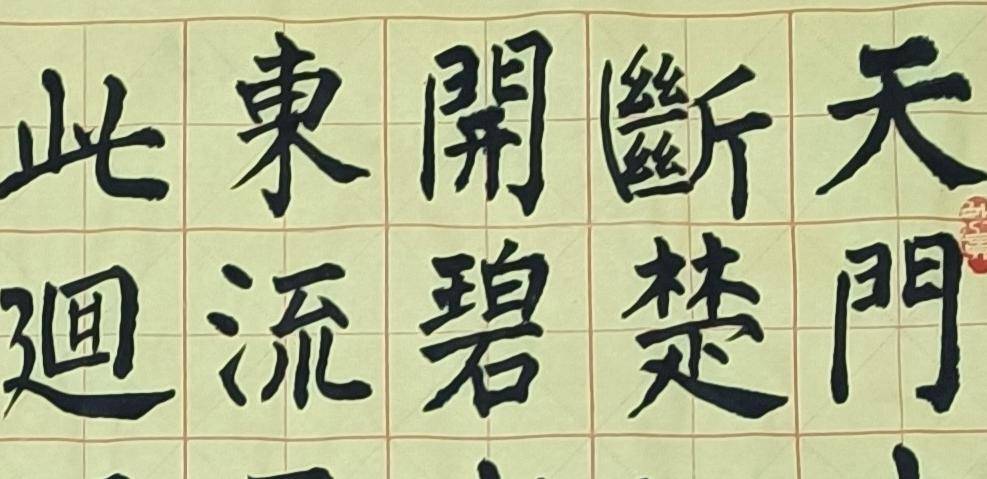 天門
斷楚
開碧
東流
此廻